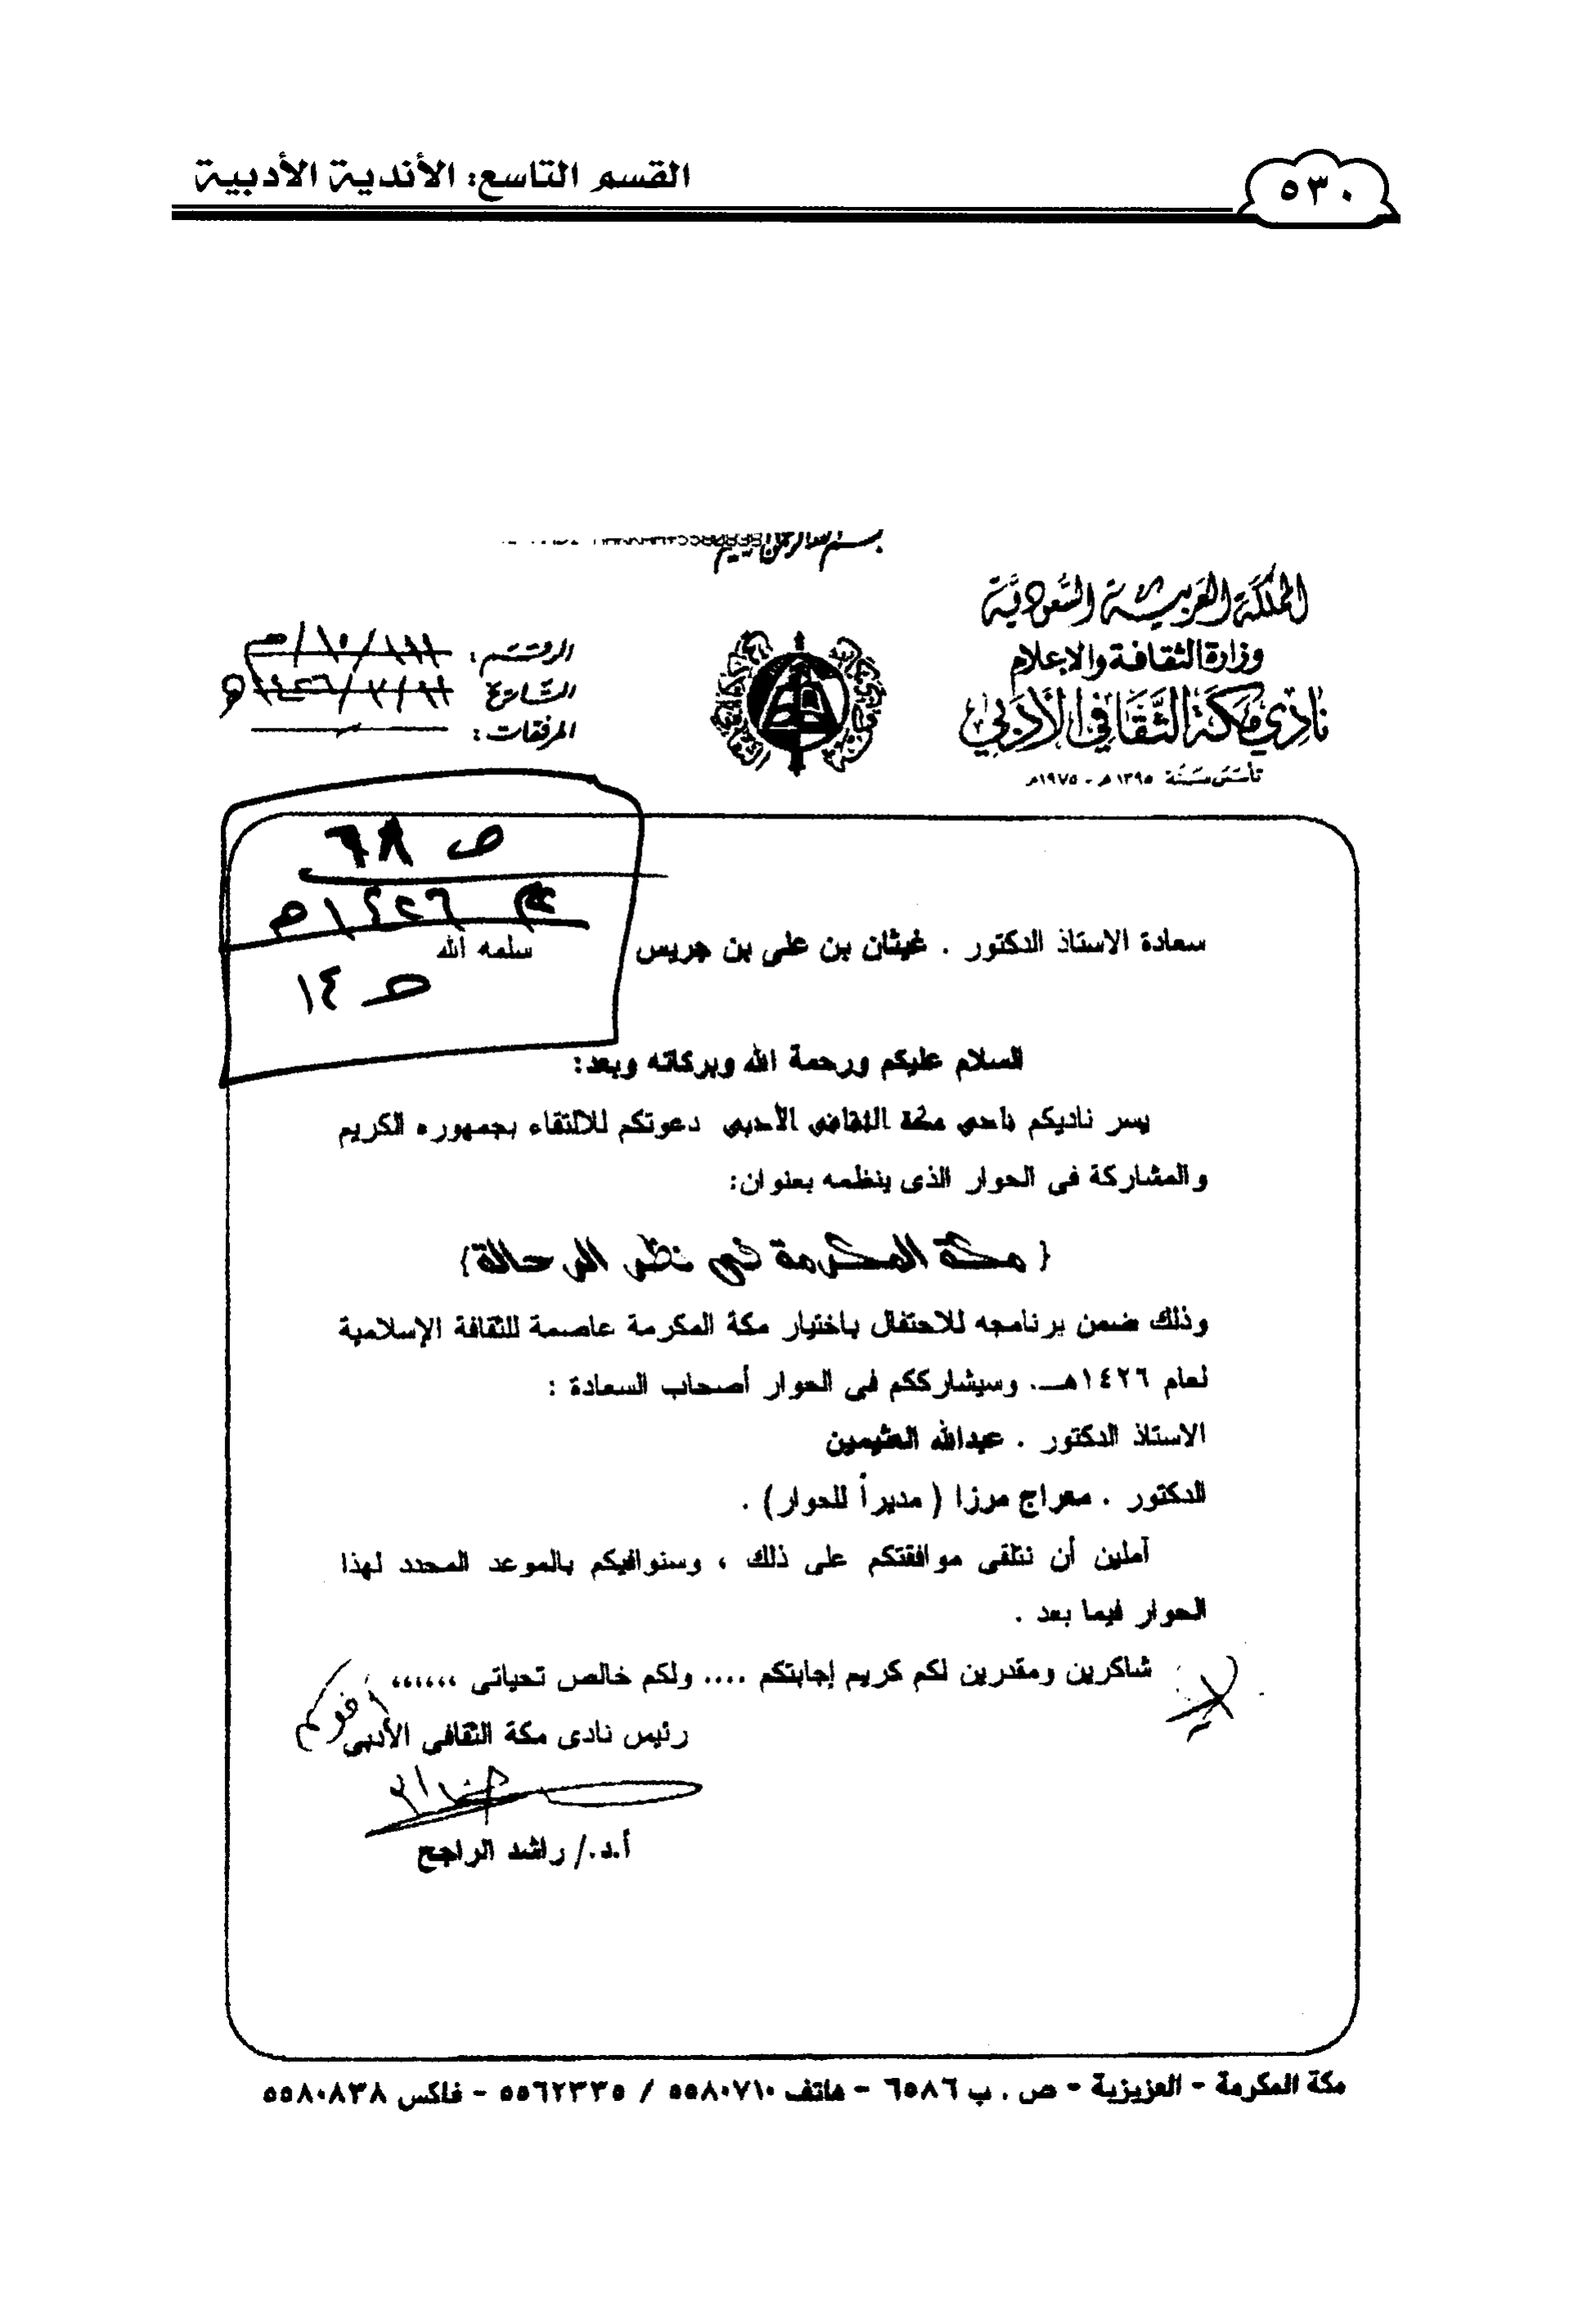 القسم التاسع: الأندية الأدبية
٥٣٠
المملكة العربية السعودية
وزارة الثقافة والإعلام
نادي مكة الثقافي الأدبي
تأسس سنة ١٣٩٥هـ - ١٩٧٥م
الرقم:
التاريخ
المرفقات:
ص ٦٨
١٤٢٦هـ
ص ١٤
سعادة الاستاذ الدكتور . غيثان بن على بن جريس سلمه الله
السلام عليكم ورحمة الله وبركاته وبعد:
يسر ناديكم نادي مكة الثقافي الأدبي دعوتكم للالتقاء بجمهوره الكريم
والمشاركة فى الحوار الذى ينظمه بعنوان:
{ مكة المكرمة في نظر الرحالة}
وذلك ضمن برنامجه للاحتفال باختيار مكة المكرمة عاصمة للثقافة الإسلامية
لعام ١٤٢٦هـ. وسيشارككم فى الحوار أصحاب السعادة :
الاستاذ الدكتور . عبدالله العثيمين
الدكتور . معراج مرزا ( مديراً للحوار) .
آملين أن نتلقى موافقتكم على ذلك ، وسنوافيكم بالموعد المحدد لهذا
الحوار فيما بعد .
شاكرين ومقدرين لكم كريم إجابتكم .... ولكم خالص تحياتى ،،،،،،
أخوكم
رئيس نادى مكة الثقافى الأدبى
أ.د./ راشد الراجح
مكة المكرمة - العزيزية - ص . ب ٦٥٨٦ - هاتف ٥٥٨٠٧١٠ / ٥٥٦٢٣٣٥ - فاكس ٥٥٨٠٨٣٨